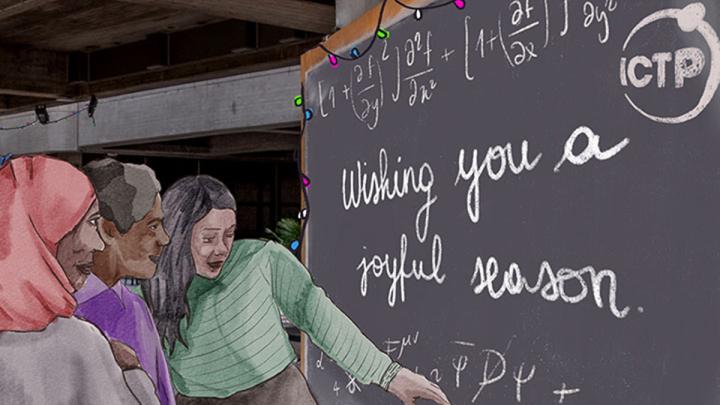 [1+(∂f/∂y)²]∂²f/∂x² + [1+(∂f/∂x)²]∂²f/∂y²
ICTP
Wishing you a
joyful season.